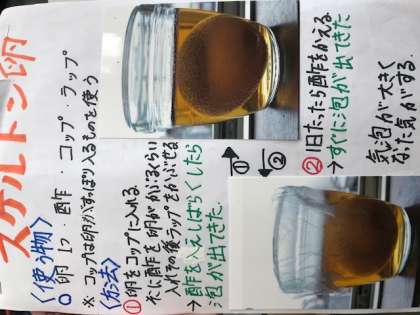 スケルトン卵
〈使う物〉
○卵1つ・酢・コップ・ラップ
※コップは卵がすっぽり入るものを使う
〈方法〉
①卵をコップに入れる。
そこに酢を卵がかぶるくらい
入れその後ラップをかぶせる
→酢を入れしばらくしたら
泡が出てきた。
①
②
②1日たったら酢をかえる。
→すぐに泡が出てきた
気泡が大きく
なった気がする